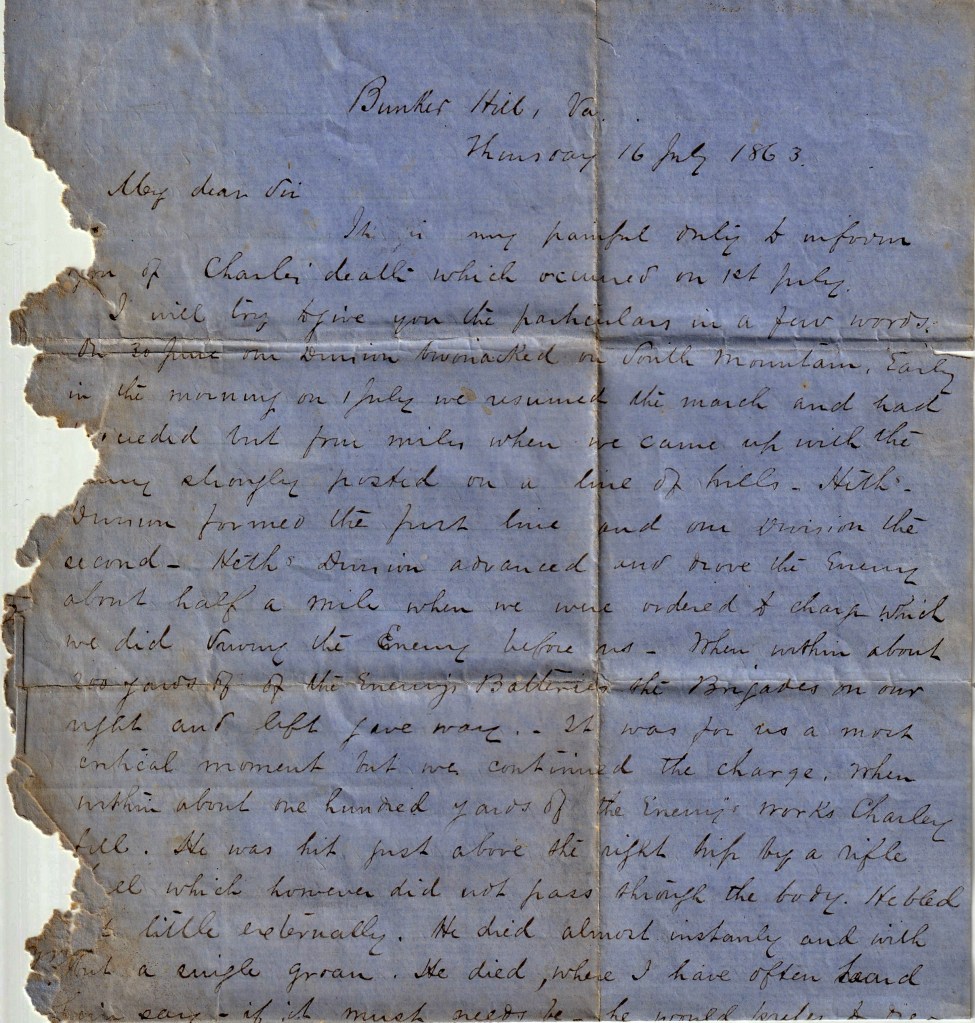 Bunker Hill, Va.
Thursday 16 July 1863.
My dear Sir
It is my painful duty to inform
you of Charley's death which occurred on 1st July.
I will try to give you the particulars in a few words.
On 30 June our Division bivouacked on South Mountain. Early
in the morning on 1 July we resumed the march and had
but four miles when we came up with the
strongly posted on a line of hills - Heth's
Division formed the first line and our Division the
second - Heth's Division advanced and drove the Enemy
about half a mile when we were ordered to charge which
we did driving the Enemy before us - When within about
200 yards of of the Enemy's Batteries the Brigades on our
right and left gave way. - It was for us a most
critical moment but we continued the charge. When
within about one hundred yards of the Enemy's works Charley
fell. He was hit just above the right hip by a rifle
which however did not pass through the body. He bled
little externally. He died almost instantly and with
out a single groan. He died, where I have often heard
him say - if it must needs be - he would prefer to die -